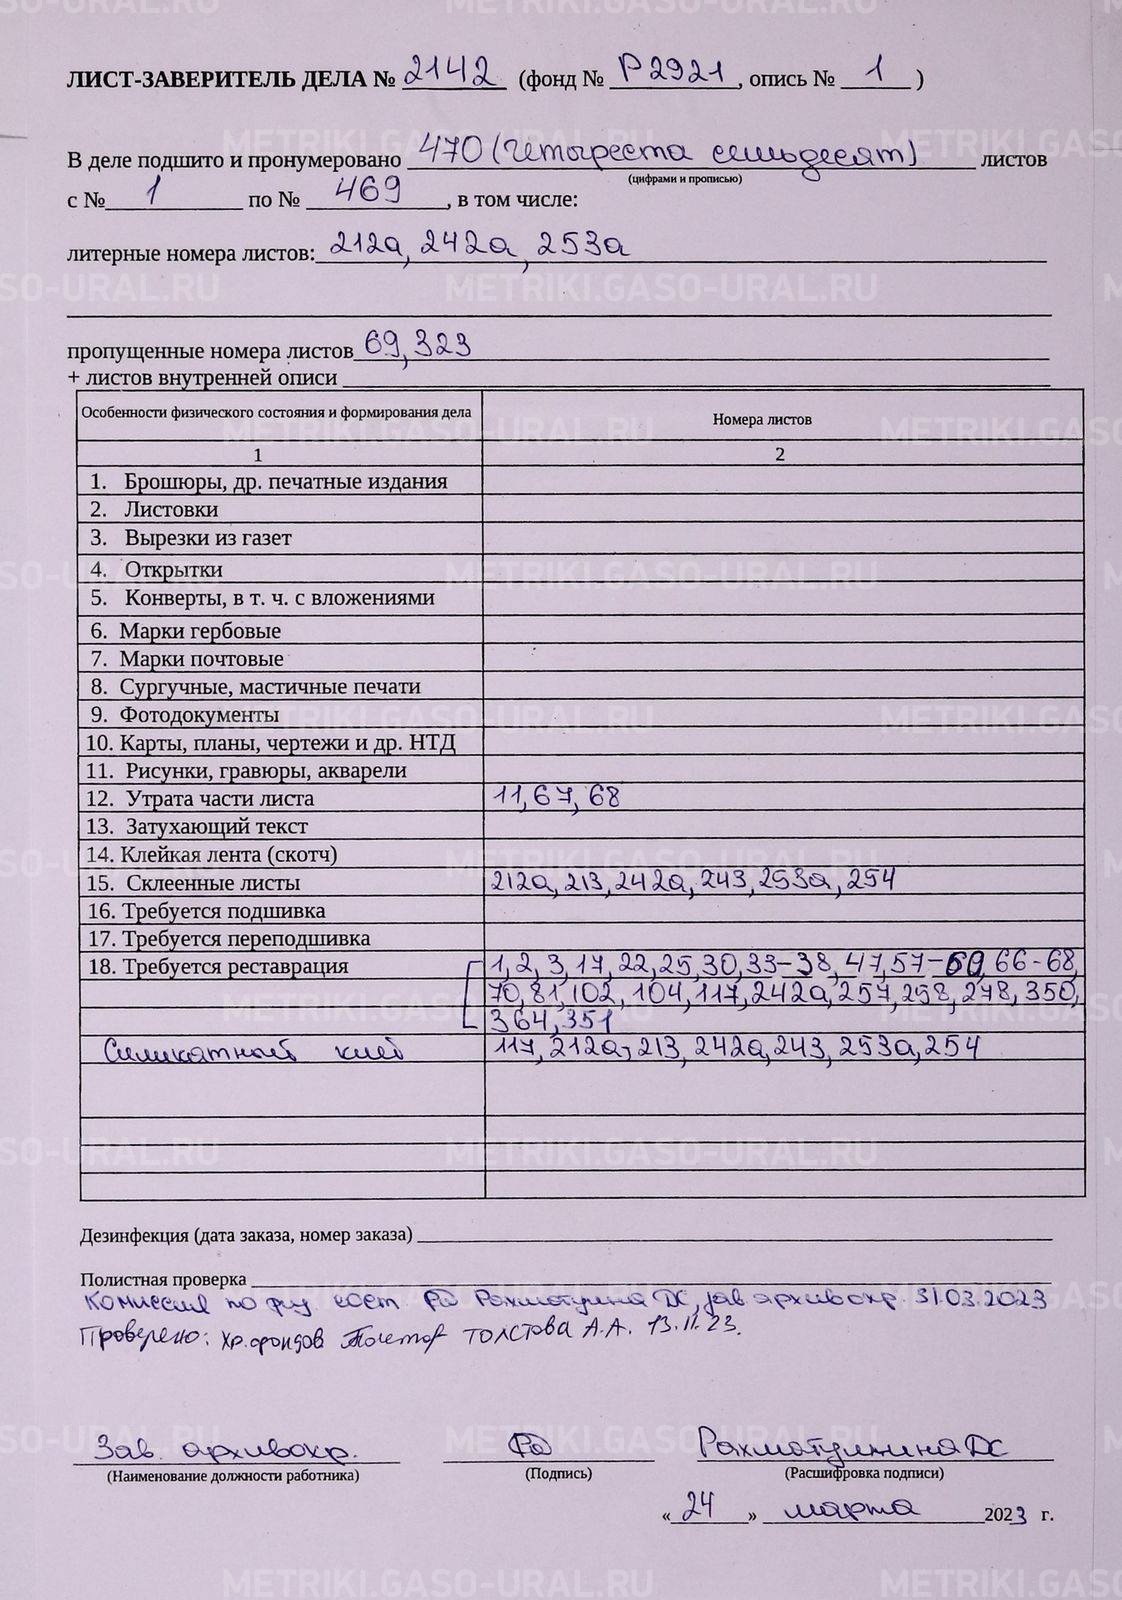 ЛИСТ-ЗАВЕРИТЕЛЬ ДЕЛА № 2142 (фонд № Р2921, опись № 1 )
В деле подшито и пронумеровано 470 (четыреста семьдесят) листов
(цифрами и прописью)
с № 1 по № 469, в том числе:
литерные номера листов: 212а, 242а, 253а
пропущенные номера листов 69, 323
+ листов внутренней описи
Особенности физического состояния и формирования дела Номера листов
1 2
1. Брошюры, др. печатные издания
2. Листовки
3. Вырезки из газет
4. Открытки
5. Конверты, в т. ч. с вложениями
6. Марки гербовые
7. Марки почтовые
8. Сургучные, мастичные печати
9. Фотодокументы
10. Карты, планы, чертежи и др. НТД
11. Рисунки, гравюры, акварели
12. Утрата части листа 11, 67, 68
13. Затухающий текст
14. Клейкая лента (скотч)
15. Склеенные листы 212а, 213, 242а, 243, 253а, 254
16. Требуется подшивка
17. Требуется переподшивка
18. Требуется реставрация 1, 2, 3, 17, 22, 25, 30, 33-38, 47, 57-60, 66-68,
70, 81, 102, 104, 117, 242а, 257, 258, 278, 350,
364, 351
Силикатный клей 117, 212а, 213, 242а, 243, 253а, 254
Дезинфекция (дата заказа, номер заказа)
Полистная проверка
Комиссия по физ сост. Рахматулина ДС, зав архивохр. 31.03.2023
Проверено: хр.фондов Толстова А.А. 13.11.23.
Зав. архивохр. Рахматулина ДС
(Наименование должности работника) (Подпись) (Расшифровка подписи)
« 24 » марта 2023 г.
METRIKI.GASO-URAL.RU